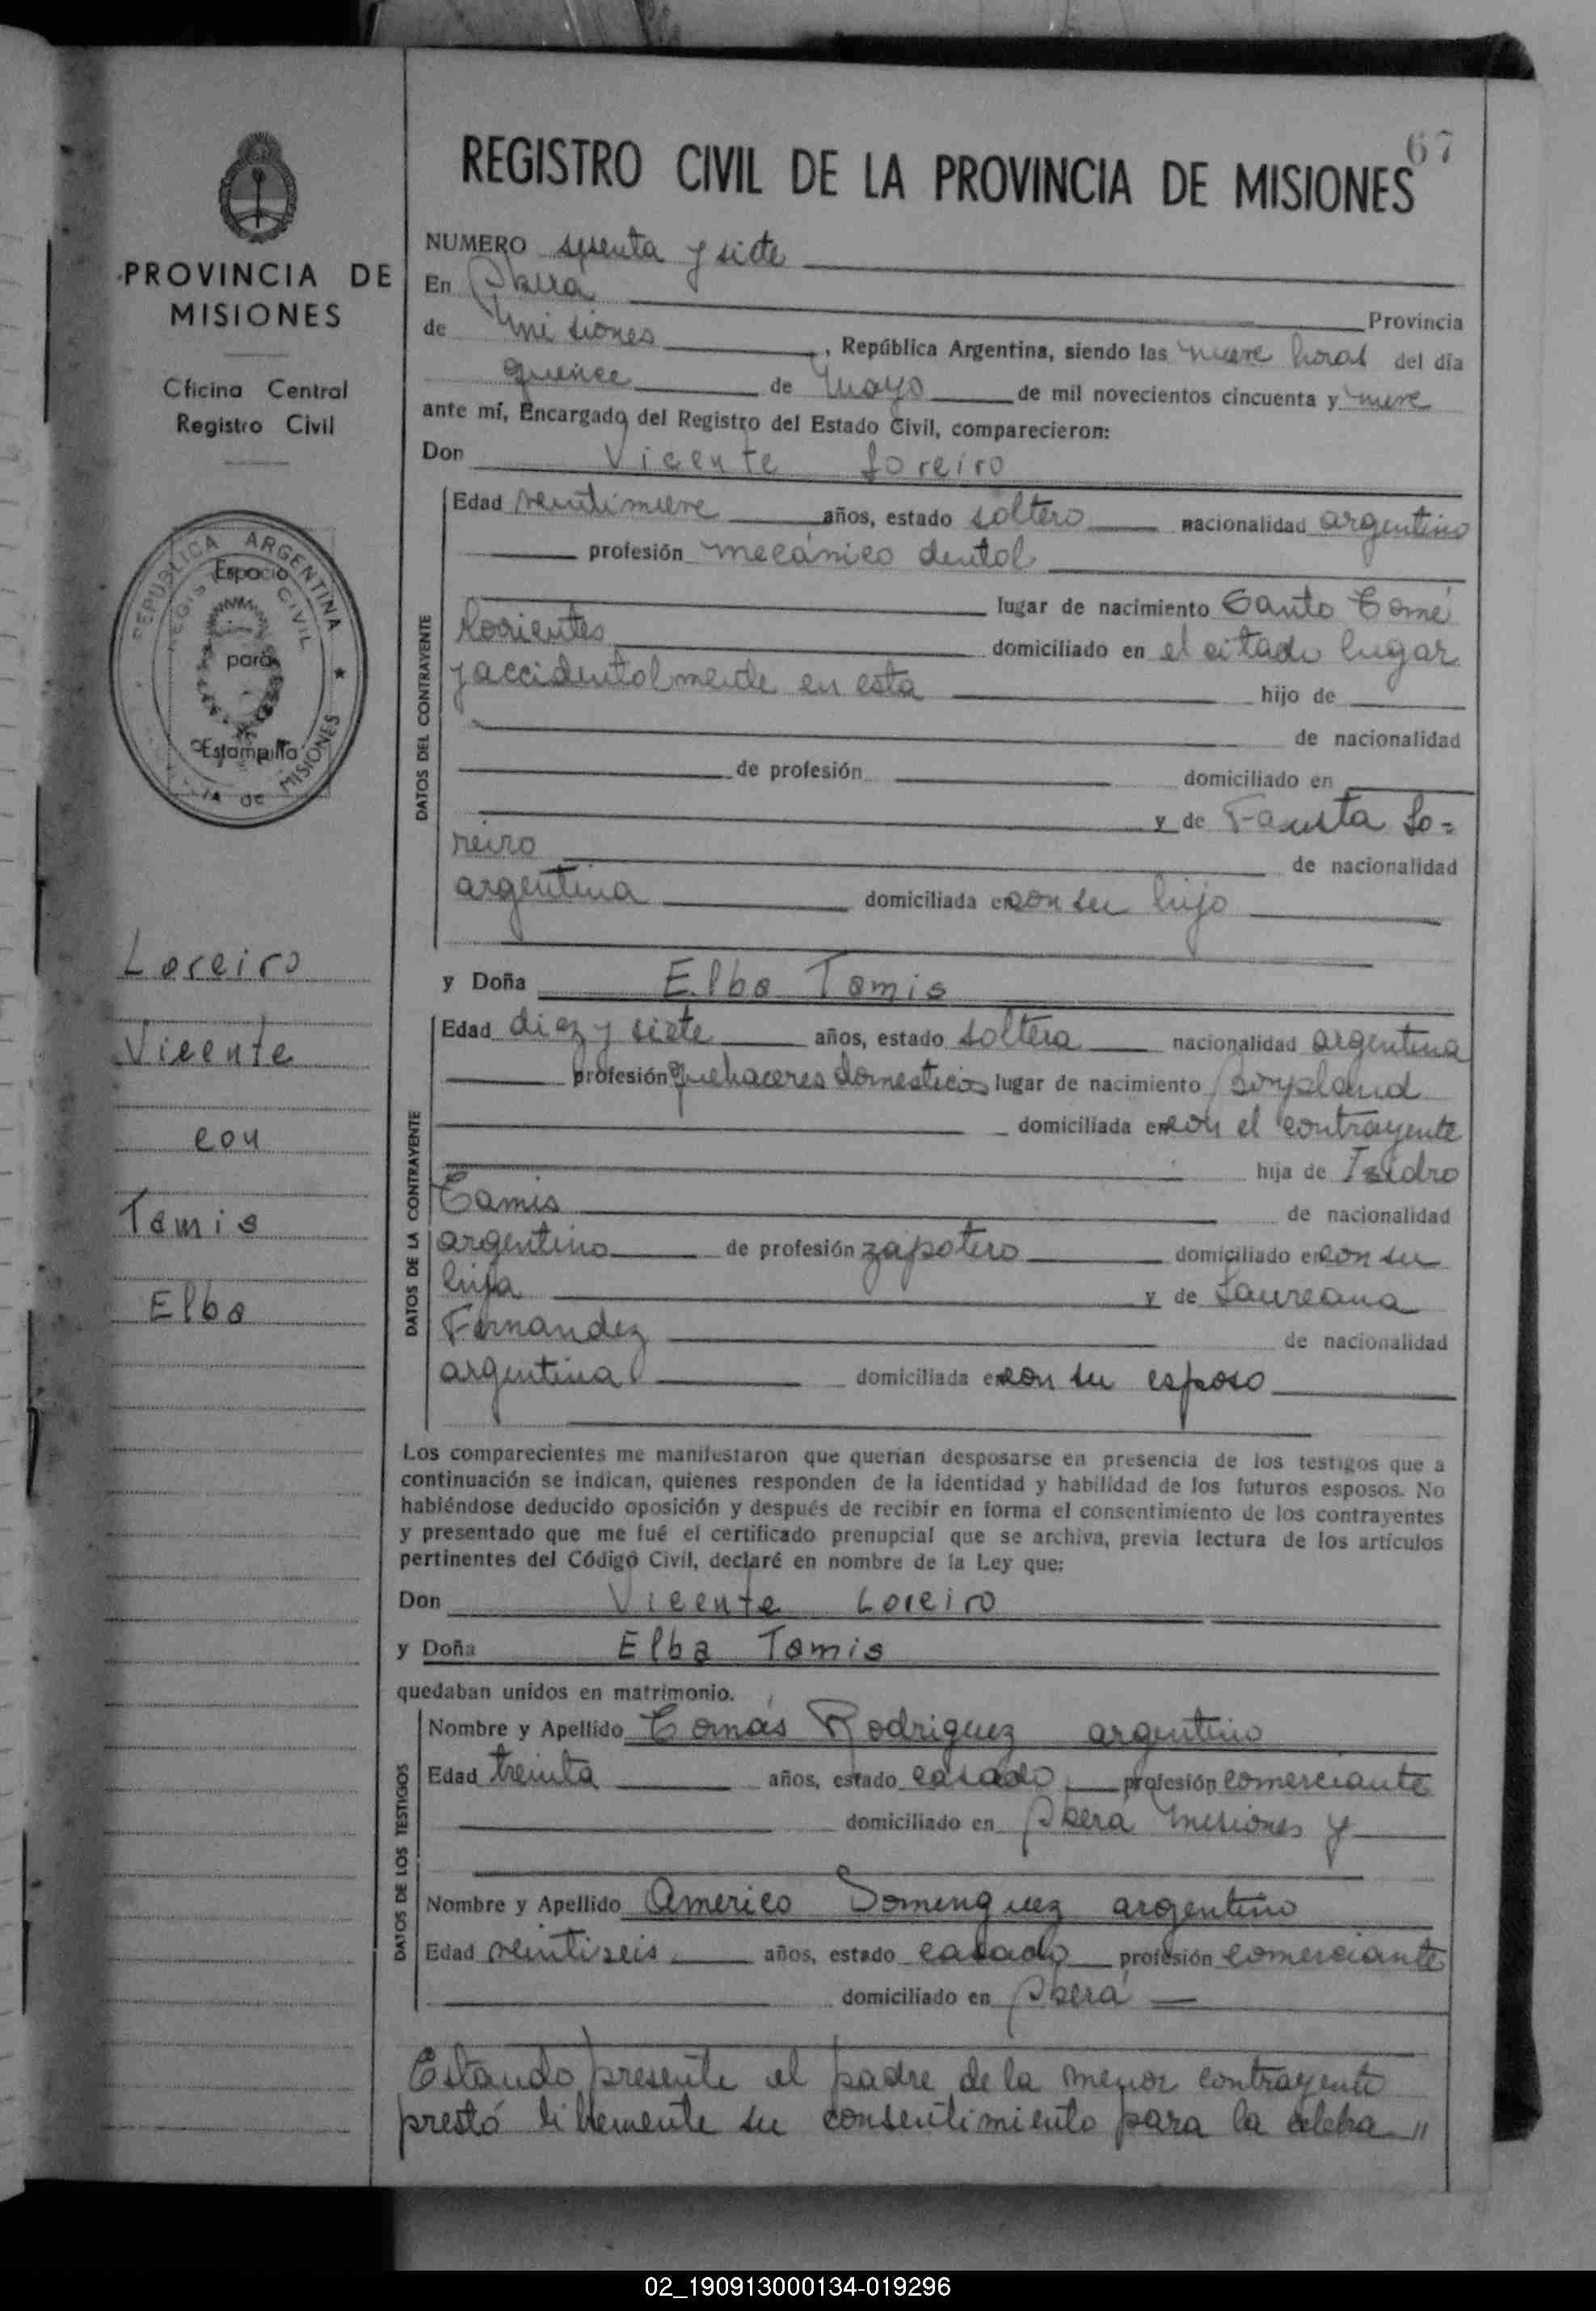 67
REGISTRO CIVIL DE LA PROVINCIA DE MISIONES
PROVINCIA DE
MISIONES
Oficina Central
Registro Civil
REPUBLICA ARGENTINA
REGISTRO CIVIL
Espacio
para
Estampilla
PROVINCIA de MISIONES
Loreiro
Vicente
con
Tamis
Elba
NUMERO sesenta y siete
En Oberá Provincia
de Misiones, República Argentina, siendo las nueve horas del día
quince de Mayo de mil novecientos cincuenta y nueve
ante mí, Encargado del Registro del Estado Civil, comparecieron:
Don Vicente Loreiro
DATOS DEL CONTRAYENTE
Edad veintinueve años, estado soltero nacionalidad argentino
profesión mecánico dental
lugar de nacimiento Santo Tomé
Corrientes domiciliado en el citado lugar
y accidentalmente en esta hijo de
de nacionalidad
de profesión domiciliado en
y de Fausta Lo=
reiro de nacionalidad
argentina domiciliada en con su hijo
y Doña Elba Tamis
DATOS DE LA CONTRAYENTE
Edad diez y siete años, estado soltera nacionalidad argentina
profesión quehaceres domesticos lugar de nacimiento Bonpland
domiciliada en con el contrayente
hija de Isidro
Tamis de nacionalidad
argentino de profesión zapatero domiciliado en con su
hija y de Laureana
Fernandez de nacionalidad
argentina domiciliada en con su esposo
Los comparecientes me manifestaron que querían desposarse en presencia de los testigos que a
continuación se indican, quienes responden de la identidad y habilidad de los futuros esposos. No
habiéndose deducido oposición y después de recibir en forma el consentimiento de los contrayentes
y presentado que me fué el certificado prenupcial que se archiva, previa lectura de los artículos
pertinentes del Código Civil, declaré en nombre de la Ley que:
Don Vicente Loreiro
y Doña Elba Tamis
quedaban unidos en matrimonio.
DATOS DE LOS TESTIGOS
Nombre y Apellido Tomás Rodriguez argentino
Edad treinta años, estado casado profesión comerciante
domiciliado en Oberá Misiones y
Nombre y Apellido Americo Domenguez argentino
Edad veintiseis años, estado casado profesión comerciante
domiciliado en Oberá
Estando presente el padre de la menor contrayente
prestó libremente su consentimiento para la celebra "
02_190913000134-019296